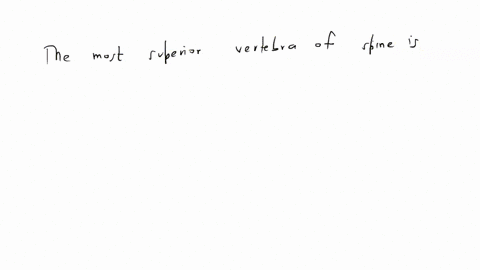 The most superior vertebra of spine is